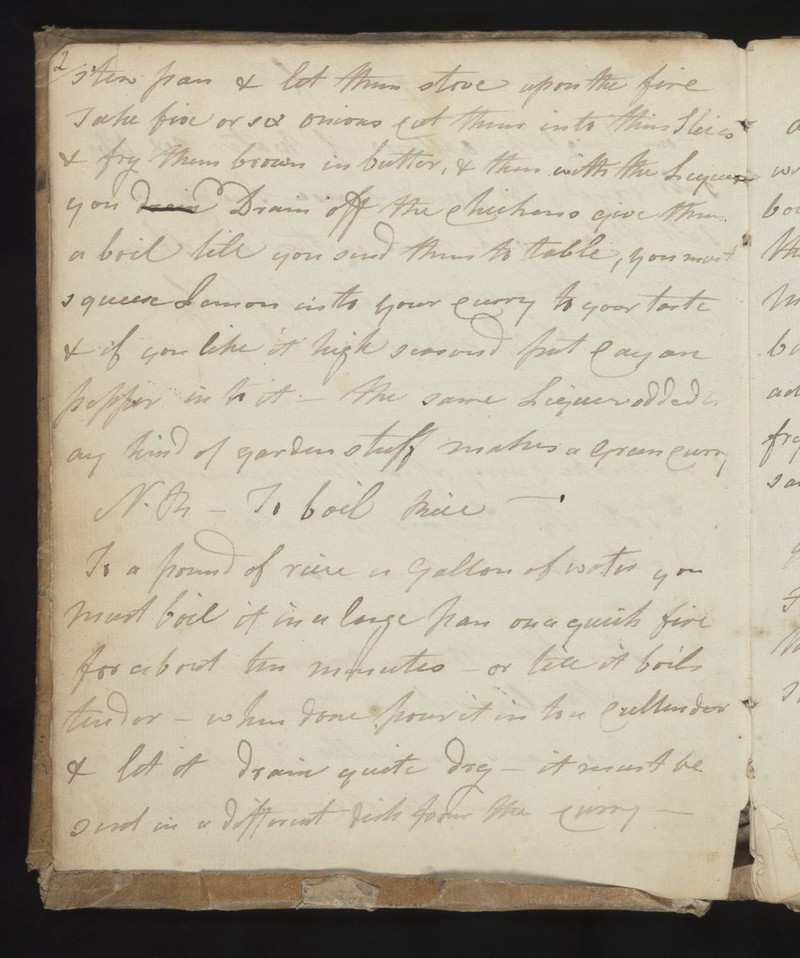 2
Stew pan & let them stove upon the fire
Take five or six onions cut them into thin Slices
& fry them brown in butter, & then with the Liquer
you drain Drain off the Chickens give them
a boil till you send them to table, you must
squeese Lemon into your Curry to your taste
& if you like it high seasond put Cayan
pepper in to it - the same Liquer added to
any kind of garden stuff makes a Green Curry
N. B - To boil Rice -
To a pound of rice a Gallon of water you
must boil it in a large pan on a quick fire
for about ten minutes - or till it boils
tender - when done pour it in to a Cullender
& let it drain quite dry - it must be
send in a different dish from the Curry -
a
bo
ad
fry
sa